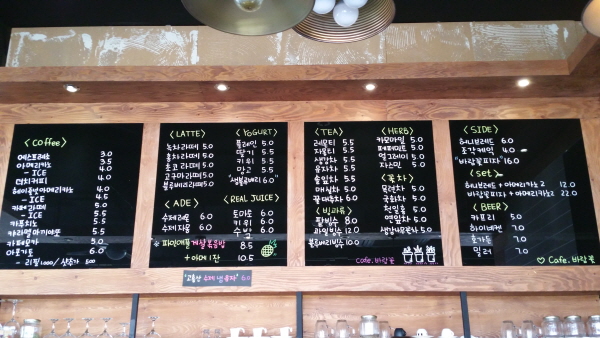 <Coffee>
에스프레소 3.0
아메리카노 3.5
- ICE 4.0
더치커피 4.0
헤이즐넛아메리카노 4.0
- ICE 4.5
카페라떼 5.0
- ICE 5.5
카푸치노 5.5
카라멜마키아또 5.5
카페모카 5.0
아포가토 6.0
- 리필 1000 / 샷추가 500
<LATTE>
녹차라떼 5.0
홍차라떼 5.0
초코라떼 5.0
고구마라떼 5.0
블루베리라떼 5.0
<YOGURT>
플레인 5.0
딸기 5.0
키위 5.0
망고 5.0
생블루베리 6.0
<ADE>
수제레몬 6.0
수제자몽 6.0
<REAL JUICE>
토마토 6.0
키위 6.0
※ 파인애플게살볶음밥 8.5
+ 아메1잔 10.5
"고흥산 수제 냉유자" 6.0
<TEA>
레몬티 5.5
자몽티 5.5
생강차 5.5
유자차 5.5
솔잎차 5.0
매실차 5.0
꿀대추차 6.0
<빙과류>
팥빙수 10.0
과일빙수 12.0
블루베리빙수 10.0
<HERB>
카모마일 5.0
페퍼민트 5.0
얼그레이 5.0
자스민 5.0
<꽃차>
목련차 5.0
국화차 5.0
천일홍 5.0
연잎차 5.0
Cafe. 바람꽃
<SIDE>
허니브레드 6.0
조각케익 4.0
"바람꽃피자" 16.0
<set>
허니브레드 + 아메리카노 2 12.0
바람꽃피자 + 아메리카노 2 22.0
<BEER>
카프리 5.0
하이네켄 7.0
호가든 7.0
밀러 7.0
♡ Cafe. 바람꽃